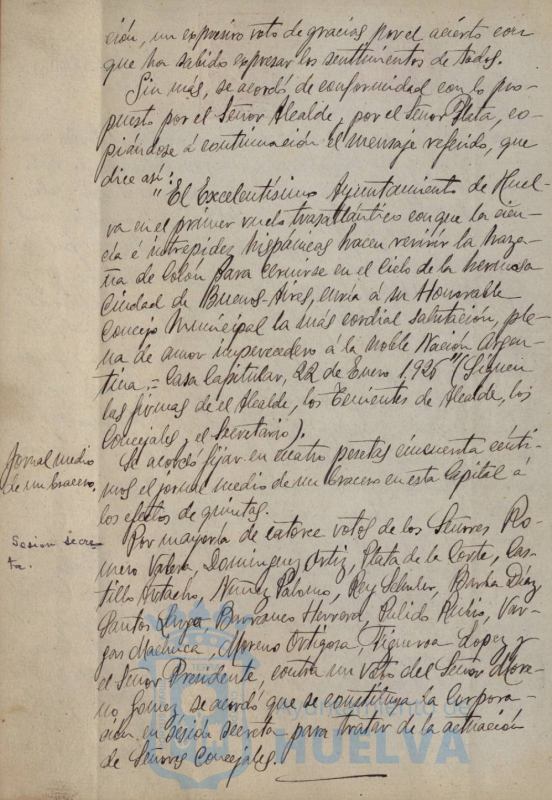 ción, un expresivo voto de gracias por el acierto con
que ha sabido expresar los sentimientos de todos.
Sin más, se acordó de conformidad con lo pro-
puesto por el Señor Alcalde, por el Señor Plata, co-
piándose á continuación el mensaje referido, que
dice así:
"El Excelentísimo Ayuntamiento de Huel-
va en el primer vuelo trasatlántico con que la cien-
cia é intrepidez hispánicas hacen revivir la haza-
ña de Colón para cernirse en el Cielo de la hermosa
Ciudad de Buenos-Aires, envía á su Honorable
Concejo Municipal la más cordial salutación, ple-
na de amor imperecedero á la noble Nación Argen-
tina.- Casa Capitular, 22 de Enero 1926" (Siguen
las firmas de el Alcalde, los Tenientes de Alcalde, los
Concejales y el Secretario).
Jornal medio
de un bracero.
Se acordó fijar en cuatro pesetas cincuenta cénti-
mos el jornal medio de un bracero en esta Capital á
los efectos de quintas.
Sesión secre-
ta.
Por mayoría de catorce votos de los Señores Ro-
mero Valera, Dominguez Ortiz, Plata de la Corte, Cas-
tillo, Nuñez Palomo, Rey Schuler, Borba Díaz
Santos, Barranco Herrera, Pulido Rubio, Var-
gas Machuca, Moreno Ortigosa, Figueroa Lopez y
el Señor Presidente, contra un voto del Señor More-
no Gomez, se acordó que se constituya la Corpora-
ción en sesión secreta para tratar de la actuación
de Señores Concejales.
Ayuntamiento de
HUELVA